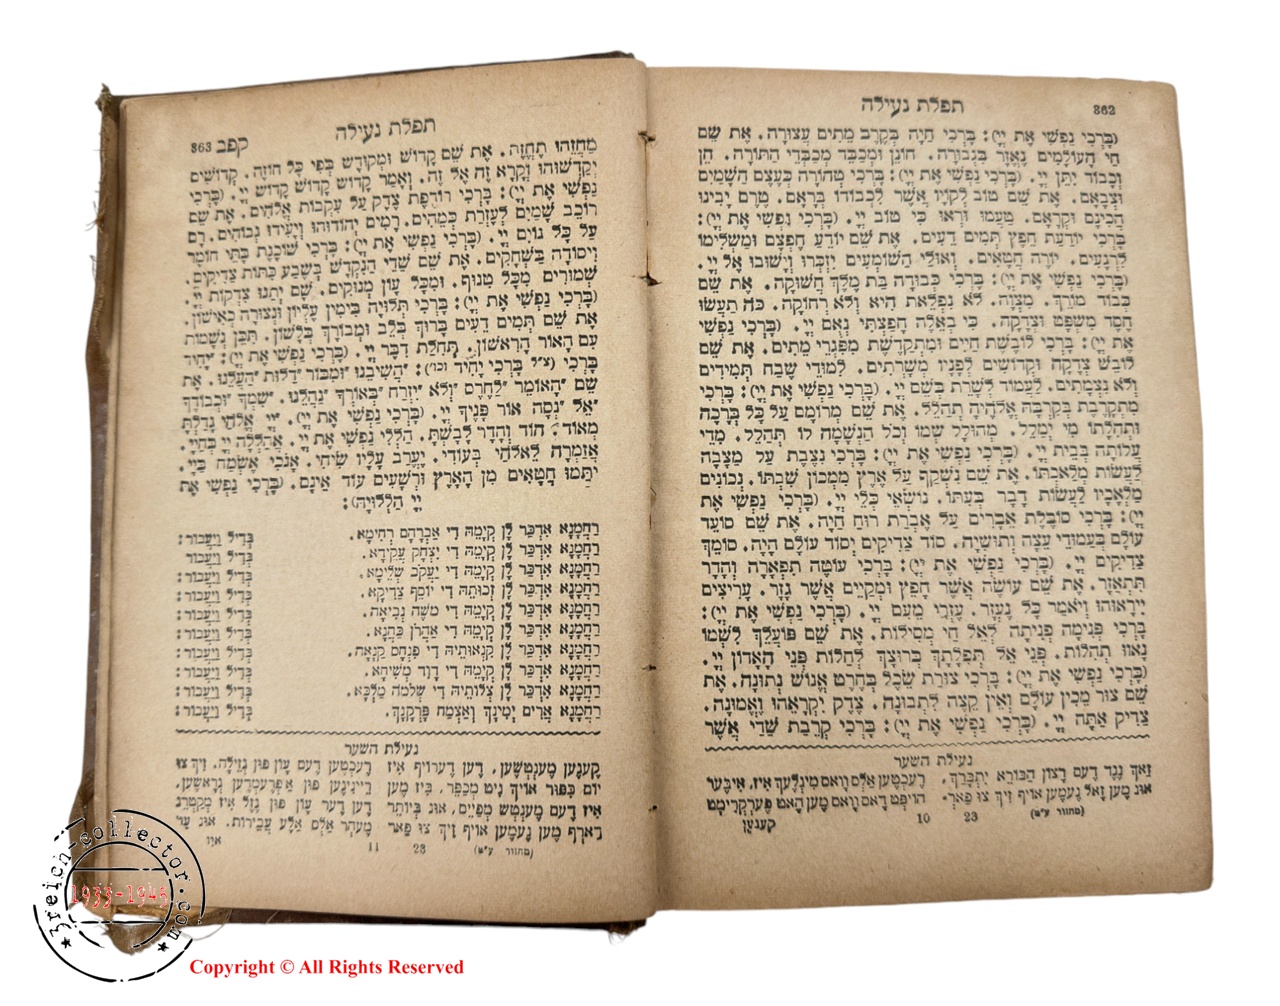 862
תפלת נעילה
(בָּרְכִי נַפְשִׁי אֶת יְיָ): בָּרְכִי חַיָּה בְּקֶרֶב מֵתִים עֲצוּרָה. אֶת שֵׁם
חַי הָעוֹלָמִים נֶאְזָר בִּגְבוּרָה. חוֹנֵן וּמְכַבֵּד מְכַבְּדֵי הַתּוֹרָה. חֵן
וְכָבוֹד יִתֵּן יְיָ. (בָּרְכִי נַפְשִׁי אֶת יְיָ): בָּרְכִי טְהוֹרָה כְּעֶצֶם הַשָּׁמַיִם
וּצְבָאָם. אֶת שֵׁם טוֹב לְקוֹיָו אֲשֶׁר לִכְבוֹדוֹ בְּרָאָם. טֶרֶם יָבִינוּ
הֲכִינָם וּקְרָאָם. טַעֲמוּ וּרְאוּ כִּי טוֹב יְיָ. (בָּרְכִי נַפְשִׁי אֶת יְיָ):
בָּרְכִי יוֹדַעַת חֵפֶץ תְּמִים דֵּעִים. אֶת שֵׁם יוֹדֵעַ חֶפְצָם וּמַשְׁלִימוֹ
לִרְגָעִים. יוֹרֶה חַטָּאִים. וְאוּלַי הַשּׁוֹמְעִים יִזְכְּרוּ וְיָשׁוּבוּ אֶל יְיָ.
(בָּרְכִי נַפְשִׁי אֶת יְיָ): בָּרְכִי כְבוּדָּה בַת מֶלֶךְ חֲשׁוּקָה. אֶת שֵׁם
כְּבוֹד מוֹרֵךְ. מִצְוָה. לֹא נִפְלֵאת הִיא וְלֹא רְחוֹקָה. כֹּה תַעֲשׂוּ
חֶסֶד מִשְׁפָּט וּצְדָקָה. כִּי בְאֵלֶּה חָפַצְתִּי נְאֻם יְיָ. (בָּרְכִי נַפְשִׁי
אֶת יְיָ): בָּרְכִי לוֹבֶשֶׁת חַיִּים וּמִתְקַדֶּשֶׁת מִפִּגְרֵי מֵתִים. אֶת שֵׁם
לוֹבֵשׁ צְדָקָה וּקְדוֹשִׁים לְפָנָיו מְשָׁרְתִים. לִמּוּדֵי שֶׁבַח תְּמִידִים
וְלֹא נִצְמָתִים. לַעֲמוֹד לְשָׁרֵת בְּשֵׁם יְיָ. (בָּרְכִי נַפְשִׁי אֶת יְיָ): בָּרְכִי
מִתְקָרֶבֶת בְּקִרְבָּהּ אֱלֹהֶיהָ תְּהַלֵּל. אֶת שֵׁם מְרוֹמָם עַל כָּל בְּרָכָה
וּתְהִלָּתוֹ מִי יְמַלֵּל. מְהוּלָל שְׁמוֹ וְכֹל הַנְּשָׁמָה לוֹ תְּהַלֵּל. מִדֵּי
עֲלוֹתָהּ בְּבֵית יְיָ. (בָּרְכִי נַפְשִׁי אֶת יְיָ): בָּרְכִי נִצֶּבֶת עַל מַצָּבָהּ
לַעֲשׂוֹת מְלַאכְתּוֹ. אֶת שֵׁם נִשְׁקָף עַל אֶרֶץ מִמְּכוֹן שִׁבְתּוֹ. נְכוֹנִים
מַלְאָכָיו לַעֲשׂוֹת דָּבָר בְּעִתּוֹ. נוֹשְׂאֵי כְּלֵי יְיָ. (בָּרְכִי נַפְשִׁי אֶת
יְיָ): בָּרְכִי סוֹבֶלֶת אֵבָרִים עַל אֶבְרַת רוּחַ חַיָּה. אֶת שֵׁם סוֹעֵד
עוֹלָם בְּעַמּוּדֵי עֵצָה וְתוּשִׁיָּה. סוֹד צַדִּיקִים יְסוֹד עוֹלָם הָיָה. סוֹמֵךְ
צַדִּיקִים יְיָ. (בָּרְכִי נַפְשִׁי אֶת יְיָ): בָּרְכִי עוֹטָה תִּפְאָרָה וְהָדָר
תִּתְאַזָּר. אֶת שֵׁם עוֹשֶׂה אֲשֶׁר חָפֵץ וּמְקַיֵּים אֲשֶׁר גָּזָר. עָרִיצִים
יִירָאוּהוּ וְיֹאמַר כָּל נֶעְזָר. עֶזְרִי מֵעִם יְיָ. (בָּרְכִי נַפְשִׁי אֶת יְיָ):
בָּרְכִי פְּנִימָה פְּנִיתָהּ לְאֵל חַי מְסִילוֹת. אֶת שֵׁם פּוֹעֲלֵךְ לִשְׁמוֹ
נָאווּ תְהִלּוֹת. פְּנֵי אֶל תְּפִלָּתֵךְ בְּרוּצֵךְ לְחַלּוֹת פְּנֵי הָאָדוֹן יְיָ.
(בָּרְכִי נַפְשִׁי אֶת יְיָ): בָּרְכִי צוּרַת שֵׂכֶל בְּחֶרֶט אֱנוֹשׁ נְתוּנָה. אֶת
שֵׁם צוּר מֵכִין עוֹלָם וְאֵין קֵצֶה לִתְבוּנָה. צֶדֶק יִקְרָאֵהוּ וֶאֱמוּנָה.
צַדִּיק אַתָּה יְיָ. (בָּרְכִי נַפְשִׁי אֶת יְיָ): בָּרְכִי קְרֵבַת שַׁדַּי אֲשֶׁר
נעילת השער
זַאךְ נֶגֶד דֶעם רָצוֹן הַבּוֹרֵא יִתְבָּרַךְ. רֶעכְטֶען אַלֶם וָואס מִינְלֶעךְ אִיז, אִיבֶּער
אוּנ מֶען זָאל נֶעמֶען אוֹיף זִיךְ צוּ פַאר הוֹיפְּט דָאס וָואס מֶען הָאט פֶערְקְרִימְט
(מחזור ע"מ) 23 10 קענען
תפלת נעילה
קפב 863
מַחֲזֵהוּ תֶּחֱזֶה. אֶת שֵׁם קָדוֹשׁ וּמְקוּדָּשׁ בְּפִי כָּל חוֹזֶה. קְדוֹשִׁים
יַקְדִּשׁוּהוּ וְקָרָא זֶה אֶל זֶה. וְאָמַר קָדוֹשׁ קָדוֹשׁ קָדוֹשׁ יְיָ. (בָּרְכִי
נַפְשִׁי אֶת יְיָ): בָּרְכִי רוֹדֶפֶת צֶדֶק עַל עִקְבוֹת אֱלֹהִים. אֶת שֵׁם
רוֹכֵב שָׁמַיִם לְעֶזְרַת כְּמֵהִים. רָמִים יְהוֹדוּהוּ וְיָעִידוּ גְבוֹהִים. רָם
עַל כָּל גּוֹיִם יְיָ. (בָּרְכִי נַפְשִׁי אֶת יְיָ): בָּרְכִי שׁוֹכֶנֶת בָּתֵּי חוֹמֶר
וִיסוֹדָהּ בַּשְּׁחָקִים. אֶת שֵׁם שַׁדַּי הַנִּקְדָּשׁ בְּשֶׁבַע כִּתּוֹת צַדִּיקִים.
שְׁמוּרִים מִכָּל טִנּוּף. וּמִכָּל עָוֹן מְנוּקִים. שָׁם יְתַנּוּ צִדְקוֹת יְיָ.
(בָּרְכִי נַפְשִׁי אֶת יְיָ): בָּרְכִי תְּלוּיָה בִּימִין עֶלְיוֹן וּנְצוּרָה כְאִישׁוֹן.
אֶת שֵׁם תְּמִים דֵּעִים בָּרוּךְ בְּלֵב וּמְבוֹרָךְ בְּלָשׁוֹן. תִּכֵּן נְשָׁמוֹת
עִם הָאוֹר הָרִאשׁוֹן. תְּחִלַּת דִּבֶּר יְיָ. (בָּרְכִי נַפְשִׁי אֶת יְיָ): יָחִיד
בָּרְכִי (צ״ל בָּרְכִי יָחִיד וכו'): הֲשִׁיבֵנוּ וּמִבּוֹר דַּלּוּת הַעֲלֵנוּ. אֶת
שֵׁם הָאוֹמֵר לַחֶרֶס וְלֹא יִזְרַח בְּאוֹרְךָ נַהֲלֵנוּ. שִׁמְךָ וּכְבוֹדְךָ
אֵל נְסָה אוֹר פָּנֶיךָ יְיָ. (בָּרְכִי נַפְשִׁי אֶת יְיָ). יְיָ אֱלֹהַי גָּדַלְתָּ
מְאוֹד. הוֹד וְהָדָר לָבָשְׁתָּ. הַלְלִי נַפְשִׁי אֶת יְיָ. אֲהַלְלָה יְיָ בְּחַיָּי.
אֲזַמְּרָה לֵאלֹהַי בְּעוֹדִי. יֶעֱרַב עָלָיו שִׂיחִי. אָנֹכִי אֶשְׂמַח בַּיְיָ.
יִתַּמּוּ חַטָּאִים מִן הָאָרֶץ וּרְשָׁעִים עוֹד אֵינָם. (בָּרְכִי נַפְשִׁי אֶת
יְיָ הַלְלוּיָהּ):
רַחֲמָנָא אִדְכַּר לָן קְיָמֵהּ דִּי אַבְרָהָם רְחִימָא. בְּדִיל וַיַּעֲבוֹר:
רַחֲמָנָא אִדְכַּר לָן קְיָמֵהּ דִּי יִצְחָק עֲקִידָא. בְּדִיל וַיַּעֲבוֹר
רַחֲמָנָא אִדְכַּר לָן קְיָמֵהּ דִּי יַעֲקֹב שְׁלֵימָא. בְּדִיל וַיַּעֲבוֹר:
רַחֲמָנָא אִדְכַּר לָן זְכוּתֵהּ דִּי יוֹסֵף צַדִּיקָא. בְּדִיל וַיַּעֲבוֹר:
רַחֲמָנָא אִדְכַּר לָן קְיָמֵהּ דִּי מֹשֶׁה נְבִיאָה. בְּדִיל וַיַּעֲבוֹר:
רַחֲמָנָא אִדְכַּר לָן קְיָמֵהּ דִּי אַהֲרֹן כַּהֲנָא. בְּדִיל וַיַּעֲבוֹר:
רַחֲמָנָא אִדְכַּר לָן קַנְאוּתֵיהּ דִּי פִנְחָס קַנָּאָה. בְּדִיל וַיַּעֲבוֹר:
רַחֲמָנָא אִדְכַּר לָן קְיָמֵהּ דִּי דָוִד מְשִׁיחָא. בְּדִיל וַיַּעֲבוֹר:
רַחֲמָנָא אִדְכַּר לָן צְלוֹתֵיהּ דִּי שְׁלֹמֹה מַלְכָּא. בְּדִיל וַיַּעֲבוֹר:
רַחֲמָנָא אֲרֵים יְמִינָךְ וְאַצְמַח פֻּרְקָנָךְ. בְּדִיל וַיַּעֲבוֹר:
נעילת השער
קֶענֶען מֶענְטְשֶׁען, דֶען דֶערוֹיף אִיז רֶעכְטֶען דֶעם עָוֹן פוּן גְזֵילָה. זִיךְ צוּ
יוֹם כִּפּוּר אוֹיךְ נִיט מְכַפֵּר, בִּיז מֶען רֵיינִיגֶען פוּן אַפְּרֶעמְדֶען גְרָאשֶׁען,
אִיז דֶעם מֶענְטְשׁ מְפַיֵּים, אוּנ בְּיוֹתֵר דֶען דֶער עָוֹן פוּן גֶזֶל אִיז מְקַטְרֵג
דַארְף מֶען נֶעמֶען אוֹיף זִיךְ צוּ פַאר מֶעהְר אַלְס אַלֶע עֲבֵירוֹת. אוּנ עָר
(מחזור ע"מ) 23 11 איז
3reich-collector.com
1933-1945
Copyright © All Rights Reserved